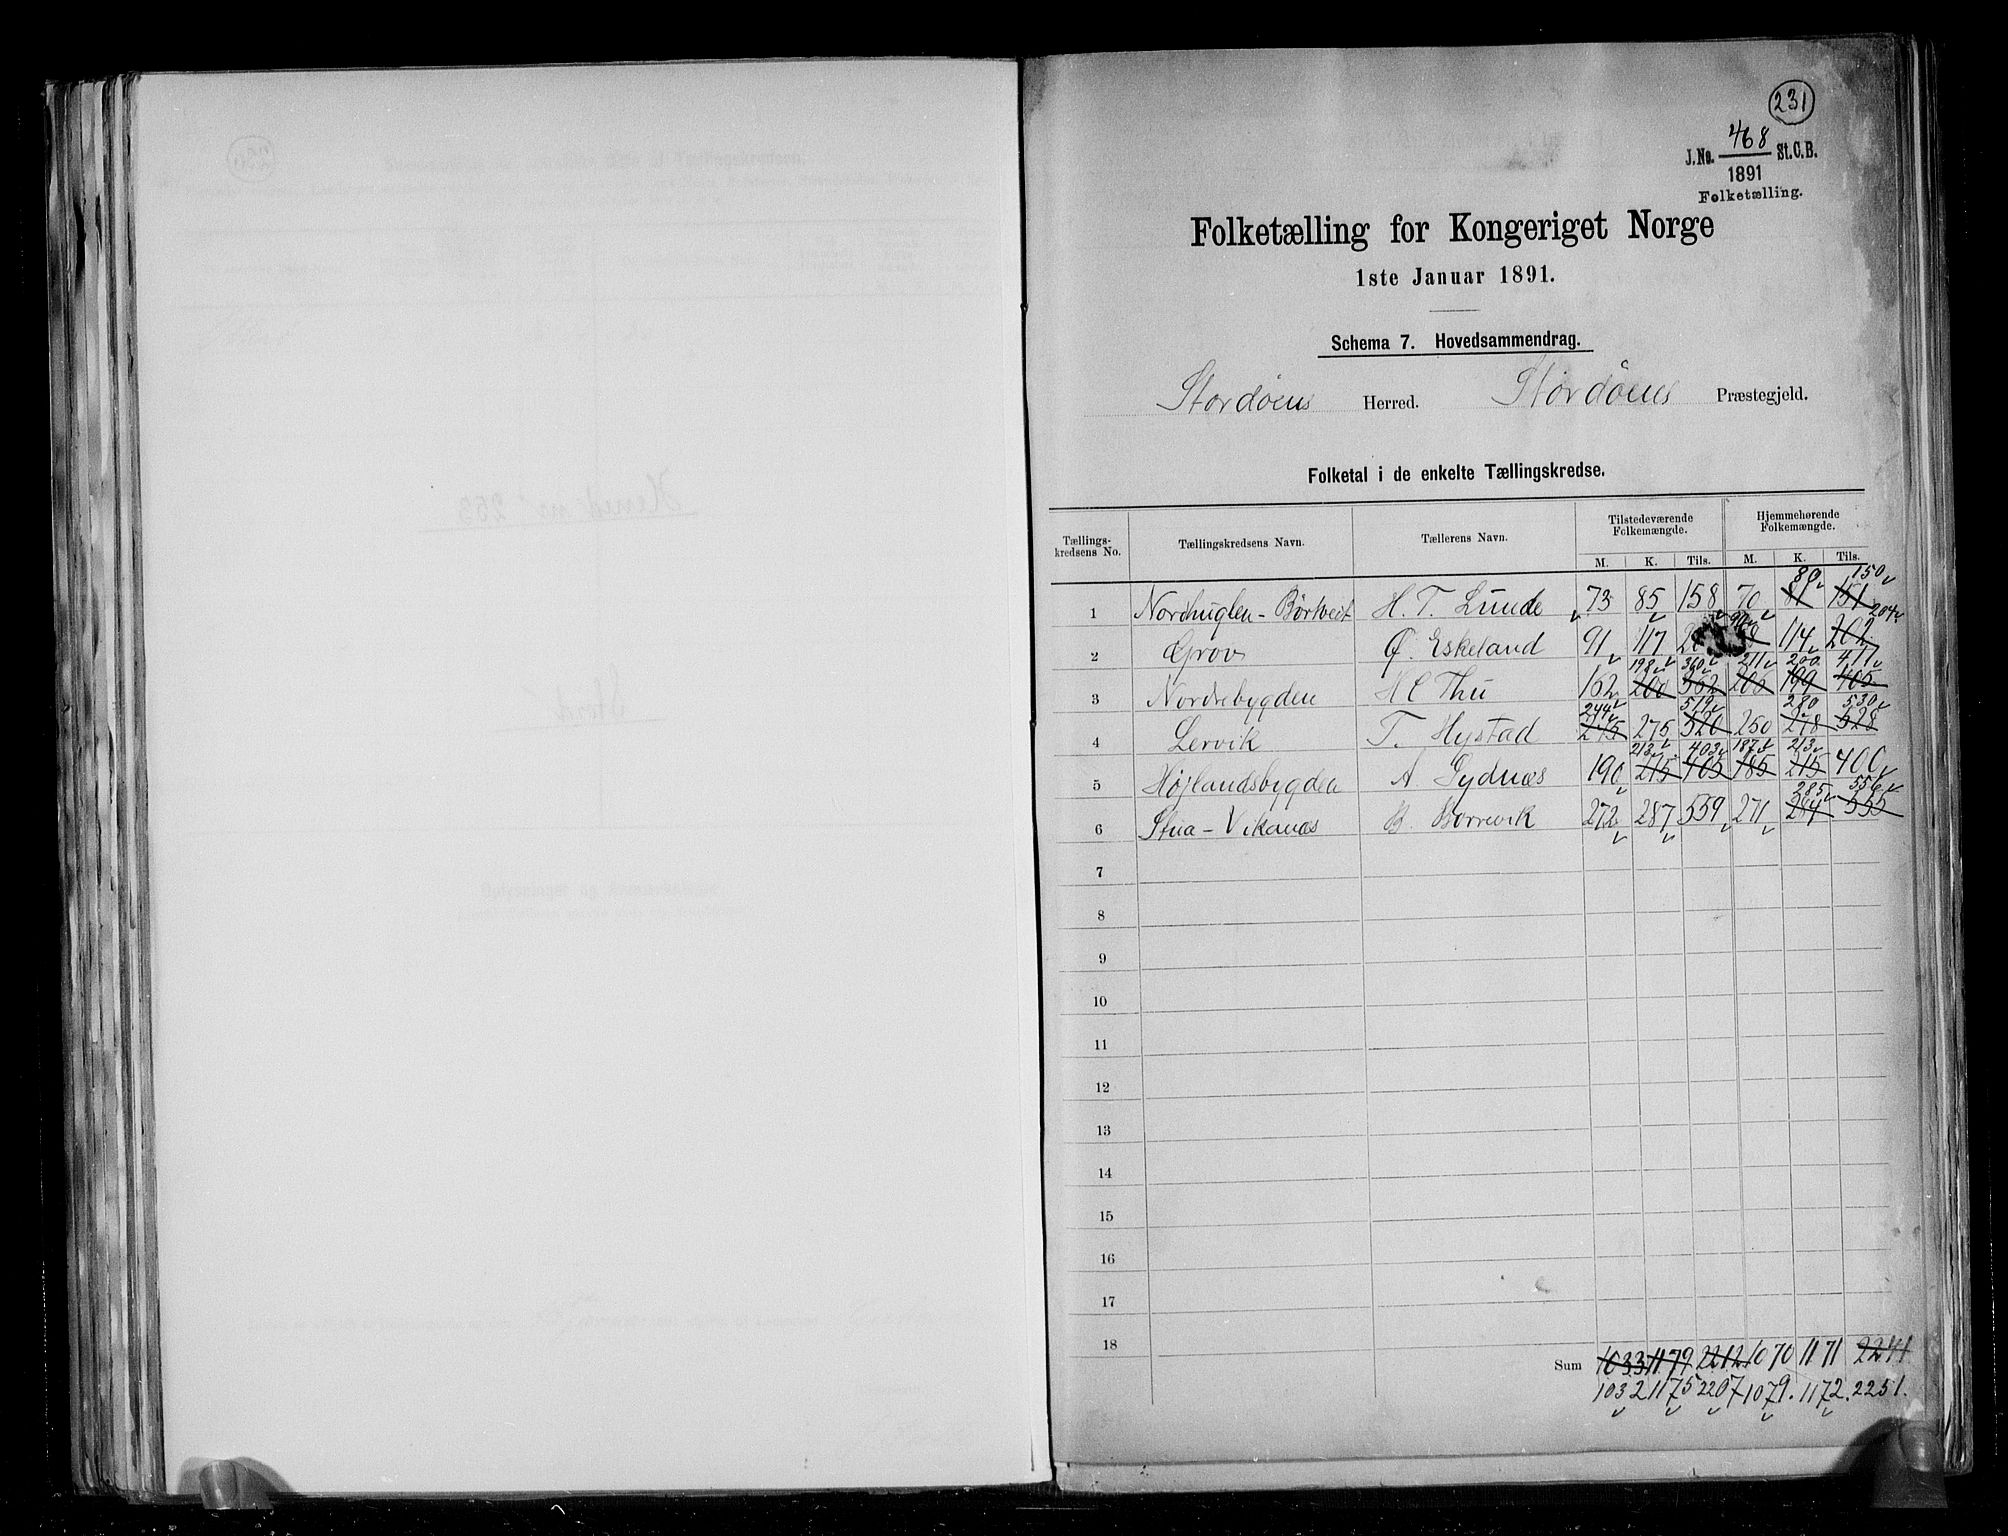 231
468
J.No. St.C.B.
1891
Folketælling.
Folketælling for Kongeriget Norge
1ste Januar 1891.
Schema 7. Hovedsammendrag.
Stordøens Herred. Stordöens Præstegjeld.
Folketal i de enkelte Tællingskredse.
Tællings-kredsens No. Tællingskredsens Navn. Tællerens Navn. Tilstedeværende Folkemængde. Hjemmehørende Folkemængde.
M. K. Tils. M. K. Tils.
80 150
1 Nordhuglen - Börtveit H. T. Lunde 73 85 158 70 81 151
90 204
2 Grov Ø. Eskeland 91 117 114 202
198 360 211 200 411
3 Nordrebygden H C Thu 162 200 362 206 199 405
244 519 280 530
4 Lervik T. Hystad 245 275 520 250 278 528
213 403 187 213
5 Højlandsbygden A. Sydnæs 190 215 405 185 215 400
285 556
6 Stua - Vikanæs B. Borrevik 272 287 559 271 284 555
7
8
9
10
11
12
13
14
15
16
17
18
Sum 1033 1179 2212 1070 1171 2241
1032 1175 2207 1079. 1172. 2251.